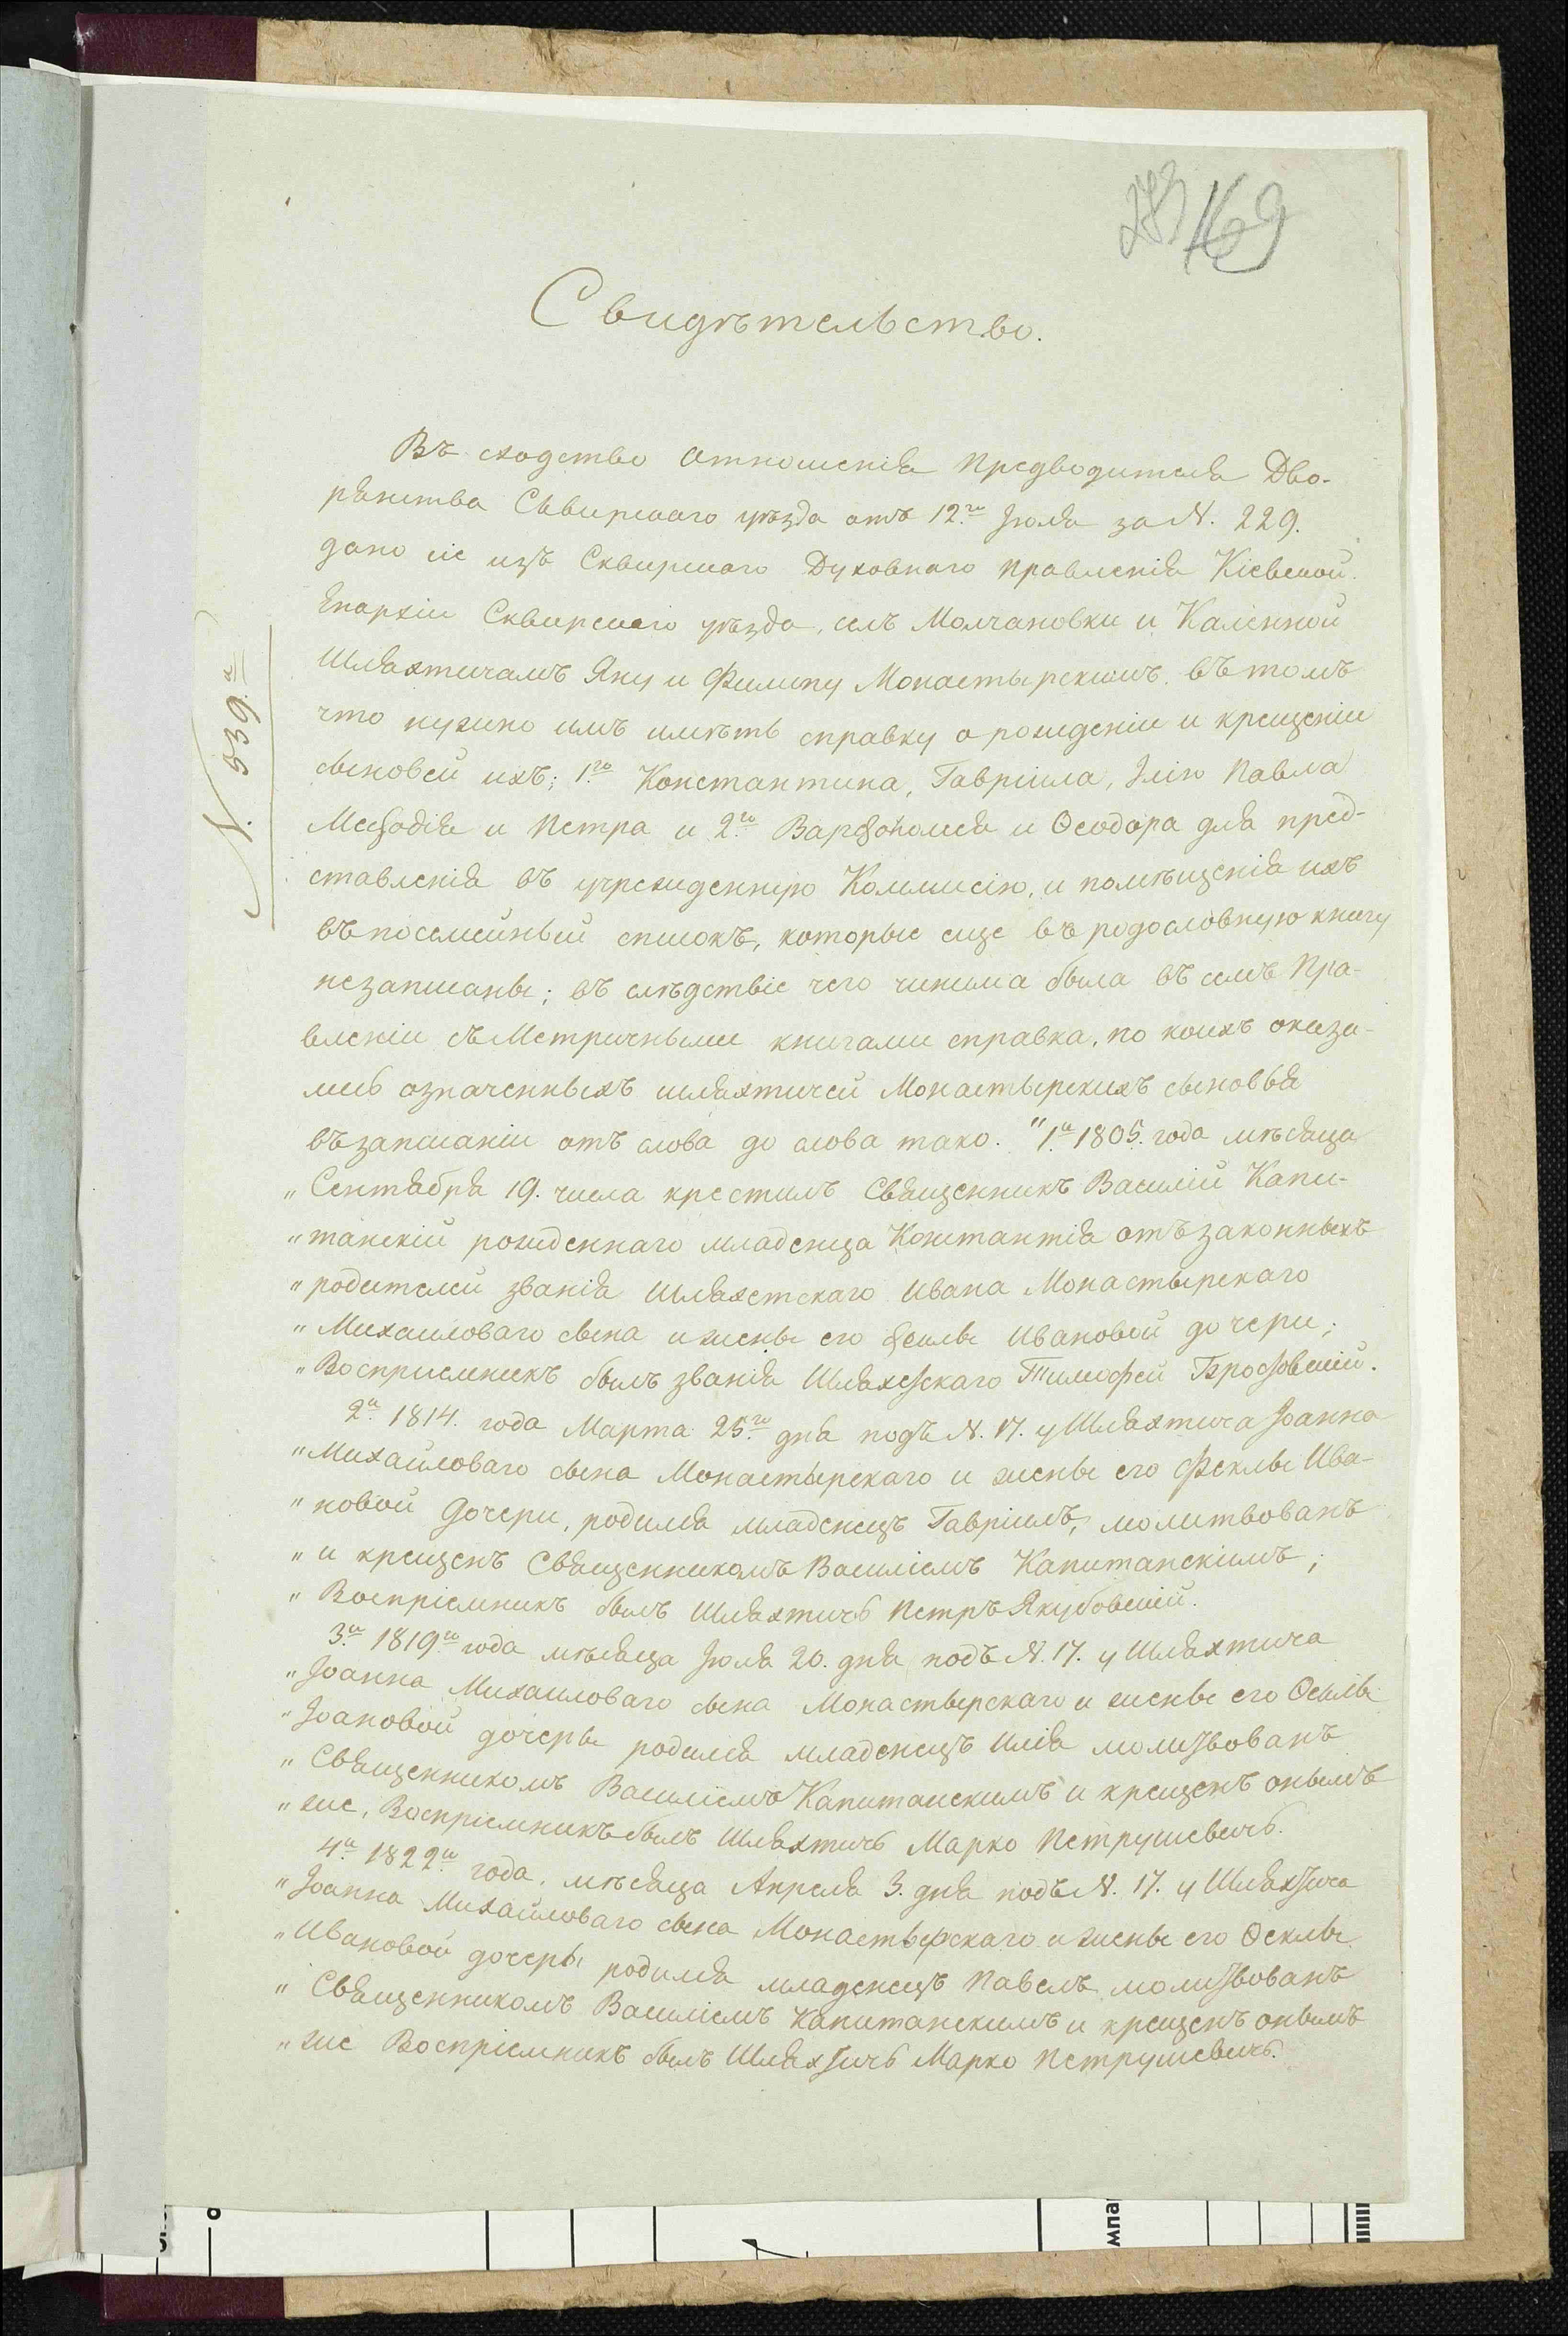 283 169
Свидѣтельство.
N. 539.й
Въ сходство отношенія Предводителя Дво-
рянства Сквирскаго уѣзда отъ 12.го Іюля за N. 229.
дано сіе изъ Сквирскаго Духовнаго Правленія Кіевской
Епархіи Сквирскаго уѣзда, селъ Молчановки и Каленной
Шляхтичамъ Яну и Филипу Монастырскимъ въ томъ
что нужно имъ имѣть справку о рожденіи и крещеніи
сыновей ихъ; 1го Константина, Гавріила, Ілію Павла
Мефодія и Петра и 2.го Варфоломея и Ѳеодора для пред-
ставленія въ учрежденную Коммисію, и помѣщенія ихъ
въ посемейный списокъ, которые еще въ родословную книгу
незаписаны; въ слѣдствіе чего чинима была въ семъ Пра-
вленіи съ Метричными книгами справка, по коихъ оказа-
лись означенныхъ шляхтичей Монастырскихъ сыновья
въ записаніи отъ слова до слова тако. "1.й 1805. года мѣсяца
„ Сентября 19. числа крестилъ Священникъ Василій Капи-
„ танскій рожденнаго младенца Константія отъ законныхъ
„ родителей званія Шляхетскаго Ивана Монастырскаго
„ Михаиловаго сына и жены его Феклы Ивановой дочери;
„ Восприемникъ былъ званія Шляхетскаго Тимофей Брофовскій.
2.й 1814. года Марта 25.го дня подъ N. 17. у Шляхтича Іоанна
„ Михайловаго сына Монастырскаго и жены его Феклы Ива-
„ новой Дочери, родился младенецъ Гавріилъ, молитвованъ
„ и крещенъ Священникомъ Василіемъ Капитанскімъ;
„ Воспріемникъ былъ Шляхтичь Петръ Якубовскій.
3.й 1819го года мѣсяца Іюля 20. дня подъ N. 17. у Шляхтича
„ Іоанна Михаиловаго сына Монастырскаго и жены его Ѳеклы
„ Іоановой дочеры родился младенецъ Илія молитвованъ
„ Священникомъ Василіемъ Капитанскимъ и крещенъ онымъ
„ же, Воспріемникъ былъ Шляхтичь Марко Петрушевичь.
4.й 1822го года, мѣсяца Апреля 3. дня подъ N. 17. у Шляхтича
„ Іоанна Михайловаго сына Монастырскаго и жены его Ѳеклы
„ Ивановой дочеры родился младенецъ Павелъ молитвованъ
„ Священникомъ Василіемъ Капитанскимъ и крещенъ онымъ
„ же Воспріемникъ былъ Шляхтичь Марко Петрушевичь.